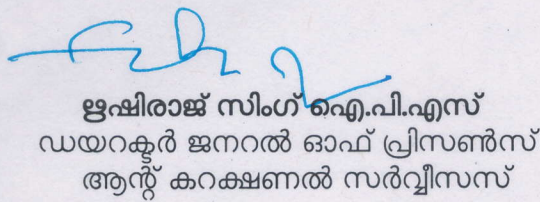 ഋഷിരാജ് സിംഗ് ഐ.പി.എസ്
ഡയറക്ടർ ജനറൽ ഓഫ് പ്രിസൺസ്
ആന്റ് കറക്ഷണൽ സർവ്വീസസ്